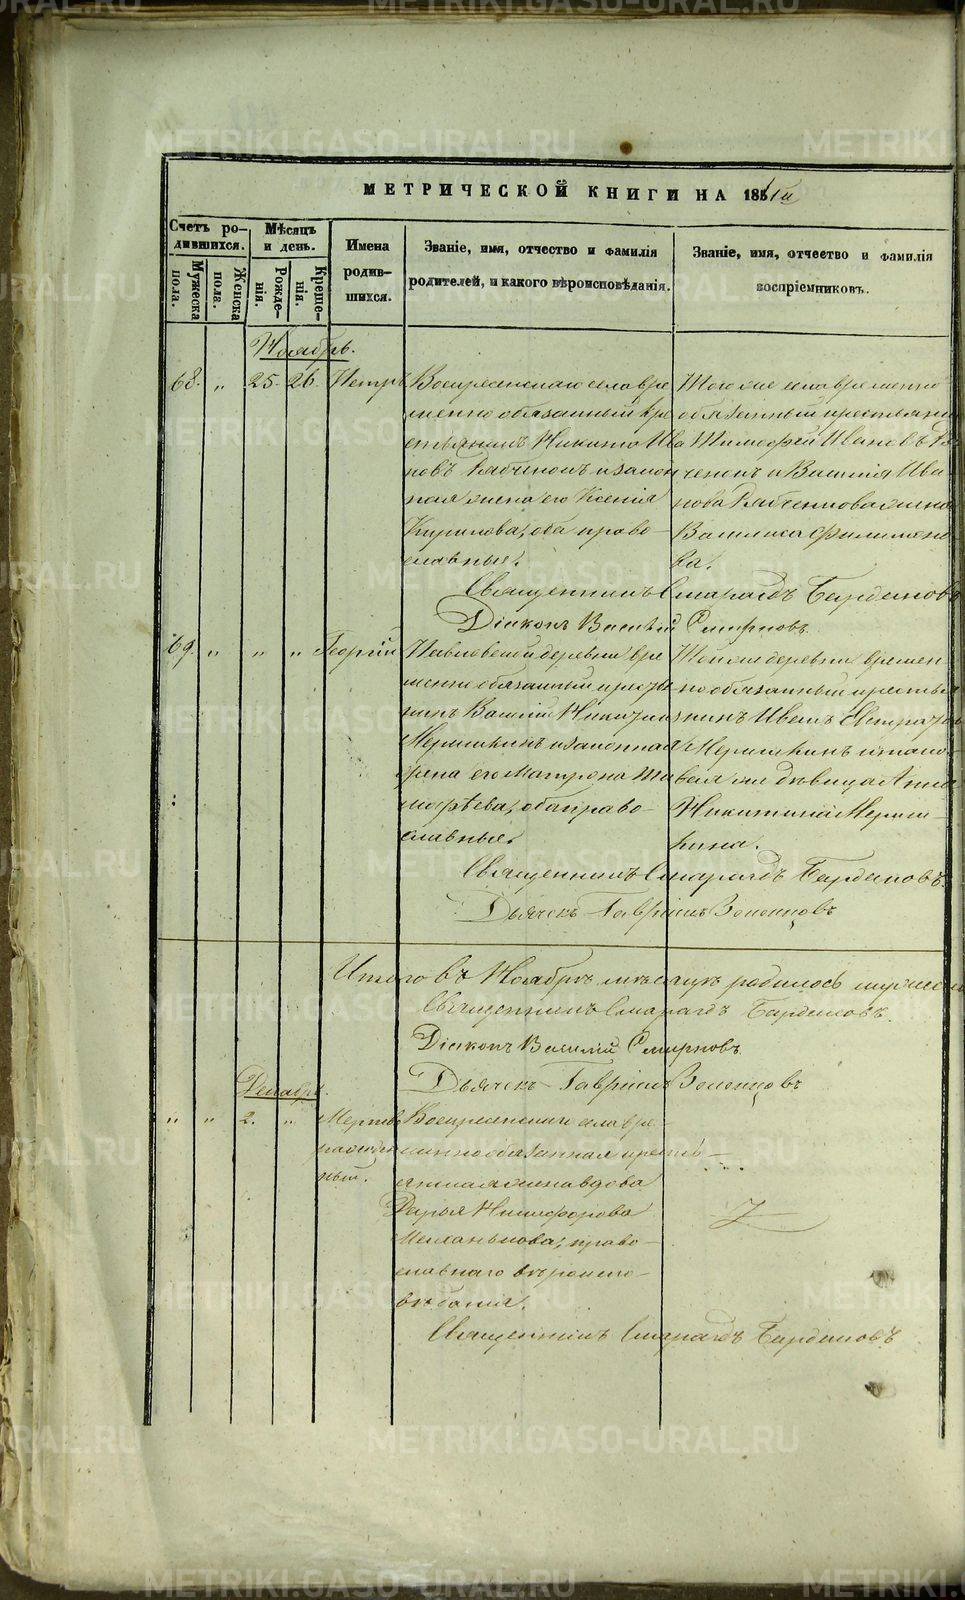 МЕТРИЧЕСКОЙ КНИГИ НА 186
Счетъ ро-
дившихся.
Мужеска
пола.
Женска
пола.
Мѣсяцъ
и день.
Рожде-
нія.
Креще-
нія.
Имена
родив-
шихся.
Званіе, имя, отчество и фамилія
родителей, и какого вѣроисповѣданія.
Званіе, имя, отчество и фамилія
воспріемниковъ.
Ноябрь.
68. " 25. 26. Петръ
Воскресенскаго села вре
менно обязанный кре
стьянинъ Никита Ива
новъ и закон
ная жена его Ксенія
Кирилова, оба право-
славные.
Того же села временно
обязанный крестьянин
Тимофей Ивановъ
и Василія Ива
нова жена
Василиса Филимоно
ва.
Священникъ Смарагдъ
Діаконъ Василій Смирновъ
69. " " " Георгій
Павловской деревни вре
менно обязанный кресть
нинъ Василій Никитинъ
и законная
жена его Матрона Ти
мофѣева, оба право-
славные.
Той же деревни времен
но обязанный крестья
нинъ
и тако
вая же дѣвица Анна
Никитина
Священникъ Смарагдъ
Дьячекъ Гавріилъ
Итого въ Ноябрѣ мѣсяцѣ родилось
Священникъ Смарагдъ
Діаконъ Василій Смирновъ
Дьячекъ Гавріилъ
Декабрь.
" " 2. "
Мертво
рожден
ный.
Воскресенскаго села вре-
менно обязанная кресть-
янская жена вдова
Дарья Никифорова
право-
славнаго вѣроиспо-
вѣданія.
Священникъ Смарагдъ
METRIKI.GASO-URAL.RU